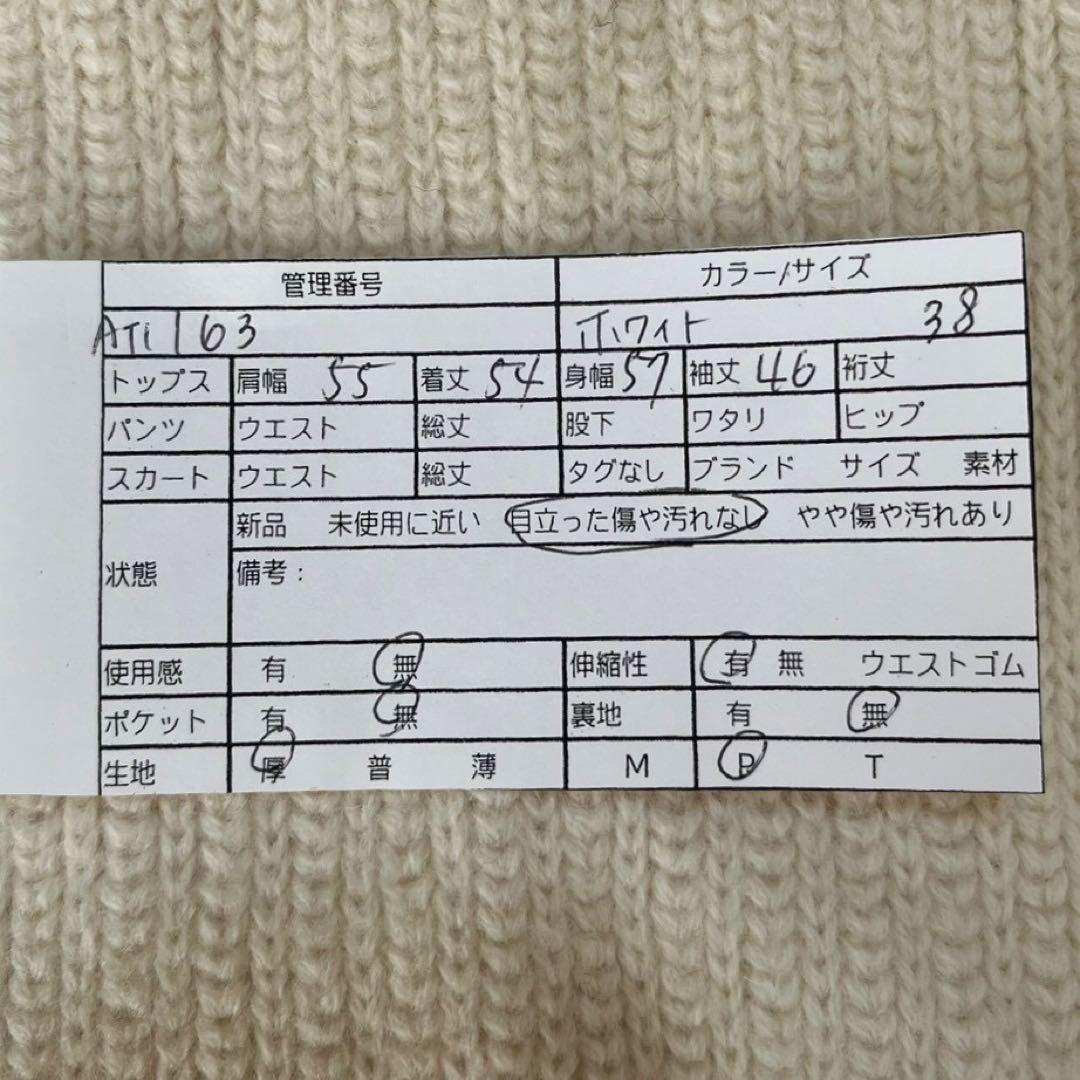 管理番号 カラー/サイズ
ATI163 ホワイト 38
トップス 肩幅 55 着丈 54 身幅 57 袖丈 46 裄丈
パンツ ウエスト 総丈 股下 ワタリ ヒップ
スカート ウエスト 総丈 タグなし ブランド サイズ 素材
新品 未使用に近い 目立った傷や汚れなし やや傷や汚れあり
状態 備考:
使用感 有 無 伸縮性 有 無 ウエストゴム
ポケット 有 無 裏地 有 無
生地 厚 普 薄 M P T